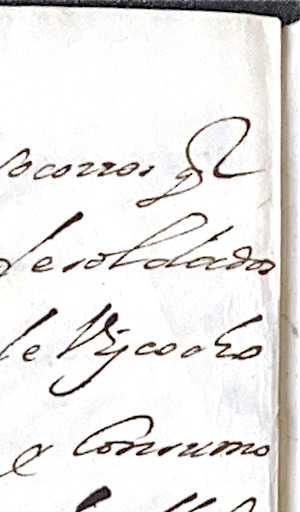 socorros q̃
de soldados
de Viscocho
y Consumo